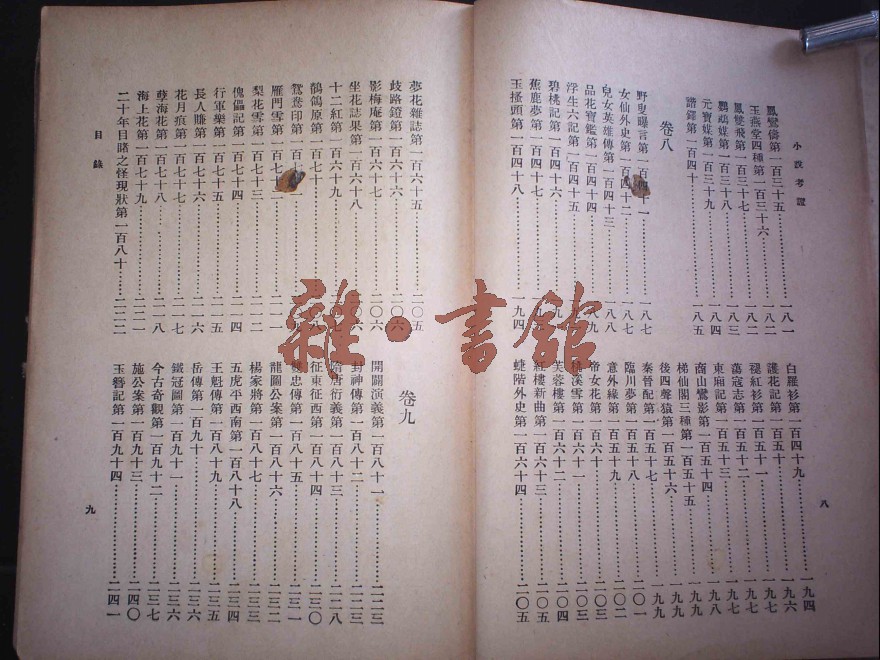 小說考證
鳳鸞儔第一百三十五……一八一
玉燕堂四種第一百三十六……
鳳雙飛第一百三十七……一八二
鸚鵡媒第一百三十八……一八三
元寶媒第一百三十九……一八四
諧鐸第一百四十……一八五
卷八
野叟曝言第一百四十一……一八七
女仙外史第一百四十二……一八七
兒女英雄傳第一百四十三……一八八
品花寶鑑第一百四十四……一八九
浮生六記第一百四十五……
碧桃記第一百四十六……
蕉鹿夢第一百四十七……
玉搔頭第一百四十八……一九四
白羅衫第一百四十九……一九四
護花記第一百五十……一九六
褪紅衫第一百五十一……一九七
萬寇志第一百五十二……一九七
東廂記第一百五十三……一九八
商山鸞影第一百五十四……一九九
梯仙閣三種第一百五十五……一九九
後四聲猿第一百五十六……一九九
秦晉配第一百五十七……一九九
臨川夢第一百五十八……二〇一
意外緣第一百五十九……二〇二
帝女花第一百六十……二〇三
桃溪雪第一百六十一……二〇三
芙蓉樓第一百六十二……二〇四
紅樓新曲第一百六十三……二〇五
蜨階外史第一百六十四……二〇五
八
夢花雜誌第一百六十五……二〇五
歧路鐙第一百六十六……二〇六
影梅庵第一百六十七……二〇六
坐花誌果第一百六十八……二〇六
十二紅第一百六十九……
鶺鴒原第一百七十……
鴛鴦印第一百七十一……
雁門雪第一百七十二……二一一
梨花雪第一百七十三……二一二
傀儡記第一百七十四……二一四
行軍樂第一百七十五……二一五
長人賺第一百七十六……二一六
花月痕第一百七十七……二一七
孽海花第一百七十八……二一八
海上花第一百七十九……二二一
二十年目睹之怪現狀第一百八十……二二二
卷九
開闢演義第一百八十一……二二三
封神傳第一百八十二……二二三
隋唐衍義第一百八十三……二二八
征東征西第一百八十四……二三〇
忠傳第一百八十五……二三一
龍圖公案第一百八十六……二三二
楊家將第一百八十七……二三三
五虎平西南第一百八十八……二三四
王魁傳第一百八十九……二三五
岳傳第一百九十……二三六
鐵冠圖第一百九十一……二三六
今古奇觀第一百九十二……二三七
施公案第一百九十三……二四〇
玉簪記第一百九十四……二四一
目錄
九
雜·書館